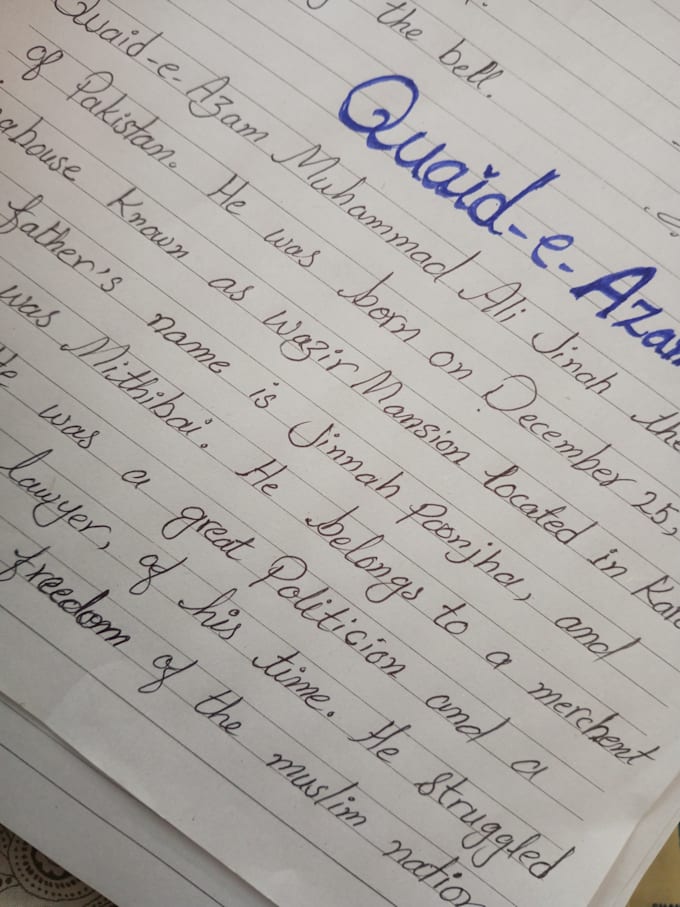 the bell.
Quaid-e-Azam
Quaid-e-Azam Muhammad Ali Jinah the
of Pakistan. He was born on December 25,
ahouse known as wazir Mansion located in Kara
father's name is Jinnah Poonjha, and
was Mithibai. He belongs to a merchent
He was a great Politicion and a
lawyer, of his time. He struggled
freedom of the muslim nation